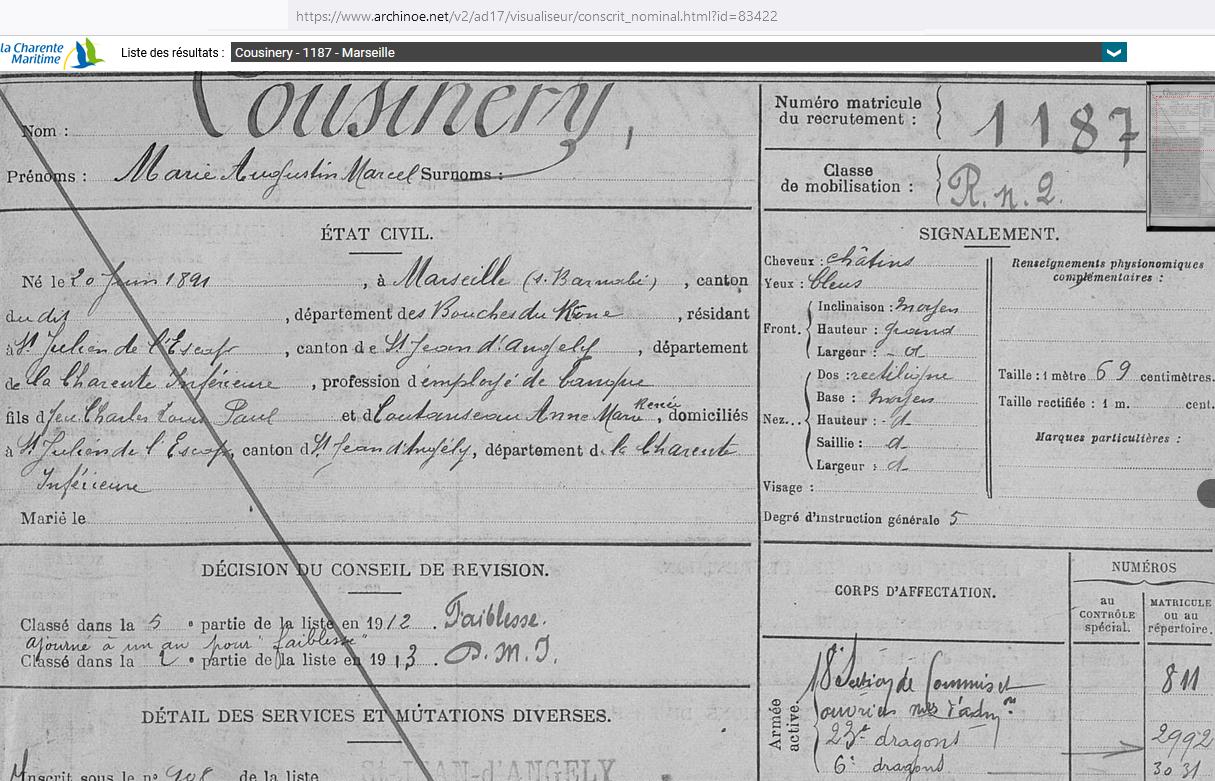 https://www.archinoe.net/v2/ad17/visualiseur/conscrit_nominal.html?id=83422
la Charente
Maritime
Liste des résultats :
Cousinery - 1187 - Marseille
Nom : Cousinery,
Prénoms : Marie Augustin Marcel Surnoms :
Numéro matricule
du recrutement : 1187
Classe
de mobilisation : R. n. 2.
ÉTAT CIVIL.
Né le 20 Juin 1891, à Marseille (St. Barnabé), canton
du dit, département des Bouches du Rône, résidant
à St Julien de l'Escap, canton de St Jean d'Angely, département
de la Charente Inférieure, profession d'employé de banque
fils d feu Charles Louis Paul et d Coutanseau Anne Marie Renée, domiciliés
à St Julien de l'Escap, canton d St Jean d'Angély, département d. la Charente
Inférieure
Marié le
SIGNALEMENT.
Cheveux : châtins
Yeux : bleus
Front.
Inclinaison : moyen
Hauteur : grand
Largeur : - d
Nez...
Dos : rectiligne
Base : moyen
Hauteur : d
Saillie : d
Largeur : d
Visage :
Degré d'instruction générale 5
Renseignements physionomiques
complémentaires :
Taille : 1 mètre 69 centimètres.
Taille rectifiée : 1 m. cent.
Marques particulières :
DÉCISION DU CONSEIL DE REVISION.
Classé dans la 5 e partie de la liste en 1912. Faiblesse.
ajourné à un an pour "faiblesse"
Classé dans la 2 e partie de la liste en 1913. P.M.I.
DÉTAIL DES SERVICES ET MUTATIONS DIVERSES.
Inscrit sous le no 908 de la liste
CORPS D'AFFECTATION.
NUMÉROS
au
CONTRÔLE
spécial.
MATRICULE
ou au
répertoire.
Armée
active.
18e Section de Commis et 811
ouvriers mres d'admon
23e dragons 2992
6e dragons 3031
ST-JEAN-d'ANGELY